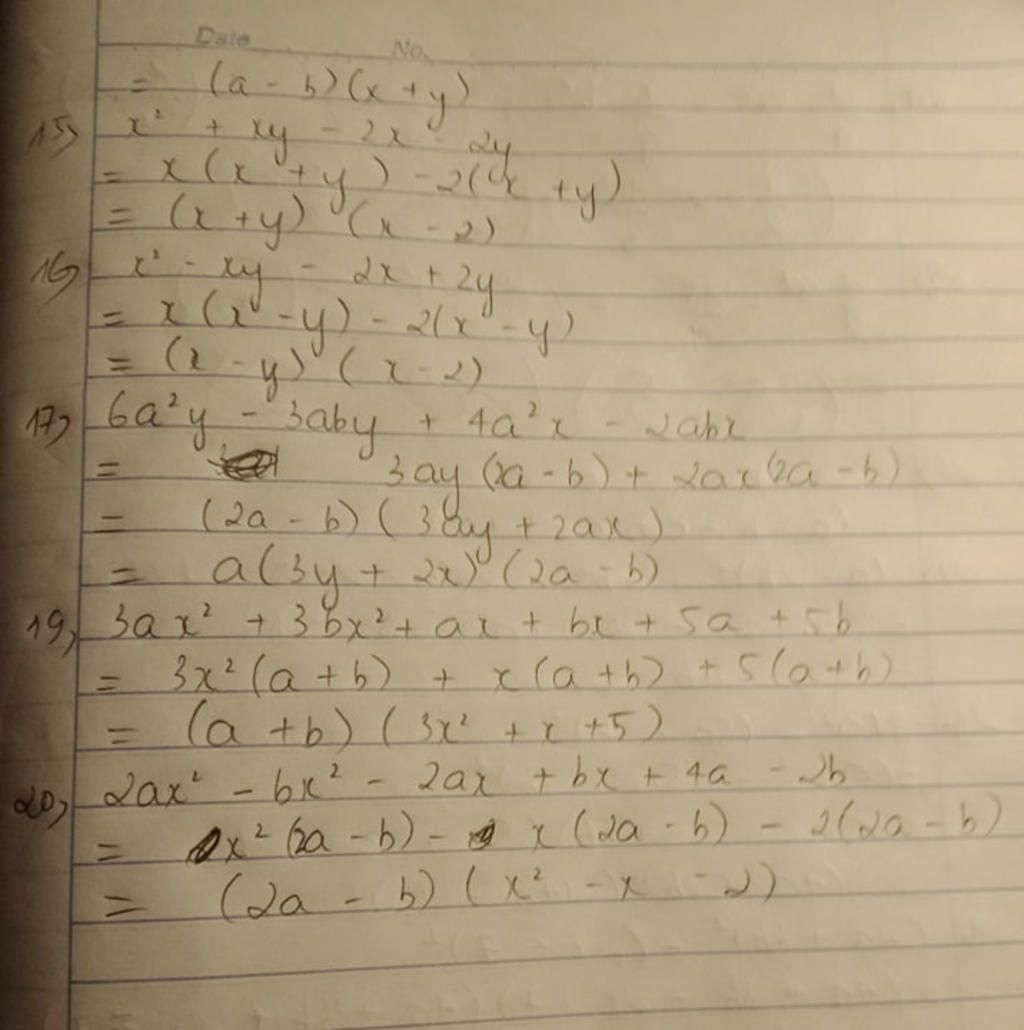 Date No.
= (a - b)(x + y)
15) x² + xy - 2x - 2y
= x(x + y) - 2(x + y)
= (x + y) (x - 2)
16) x² - xy - 2x + 2y
= x(x - y) - 2(x - y)
= (x - y) (x - 2)
17) 6a²y - 3aby + 4a²x - 2abx
= 3ay(2a - b) + 2ax(2a - b)
= (2a - b)(3ay + 2ax)
= a(3y + 2x)(2a - b)
19) 3ax² + 3bx² + ax + bx + 5a + 5b
= 3x²(a + b) + x(a + b) + 5(a + b)
= (a + b)(3x² + x + 5)
20) 2ax² - bx² - 2ax + bx + 4a - 2b
= x²(2a - b) - x(2a - b) - 2(2a - b)
= (2a - b)(x² - x - 2)